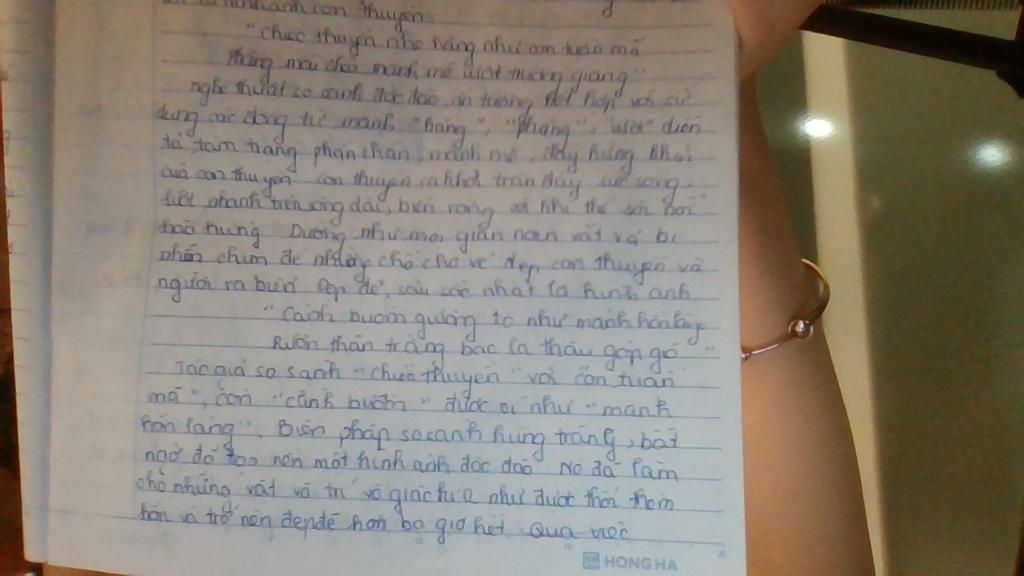 hình ảnh con thuyền
"chiếc thuyền nhẹ hăng như con tuấn mã
Phăng mái chèo mạnh mẽ vượt trường giang"
nghệ thuật so sánh độc đáo, ấn tượng kết hợp với sử
dụng các động từ mạnh "hăng", "phăng", "vượt" diễn
tả tâm trạng phấn chấn, mạnh mẽ, đầy hứng khởi
của con thuyền con thuyền ra khơi tràn đầy sức sống,
nhanh trên sông dài, biển rộng với khí thế sôi nổi
hào hứng Dường như mọi gian nan vất vả bị
nhấn chìm để nhường chỗ cho vẻ đẹp con thuyền và
người ra biển đẹp đẽ, sâu sắc nhất là hình ảnh
"Cánh buồm giương to như mảnh hồn làng
Rướn thân trắng bao la thâu góp gió"
Tác giả so sánh "chiếc thuyền" với "con tuấn
mã", còn "cánh buồm" được ví như "mảnh
hồn làng". Biện pháp so sánh hùng tráng, bất
ngờ đã tạo nên một hình ảnh độc đáo Nó đã làm
cho những vật vô tri vô giác kia như được thổi thêm
hồn và trở nên đẹp đẽ hơn bao giờ hết. Qua việc
HONG HA